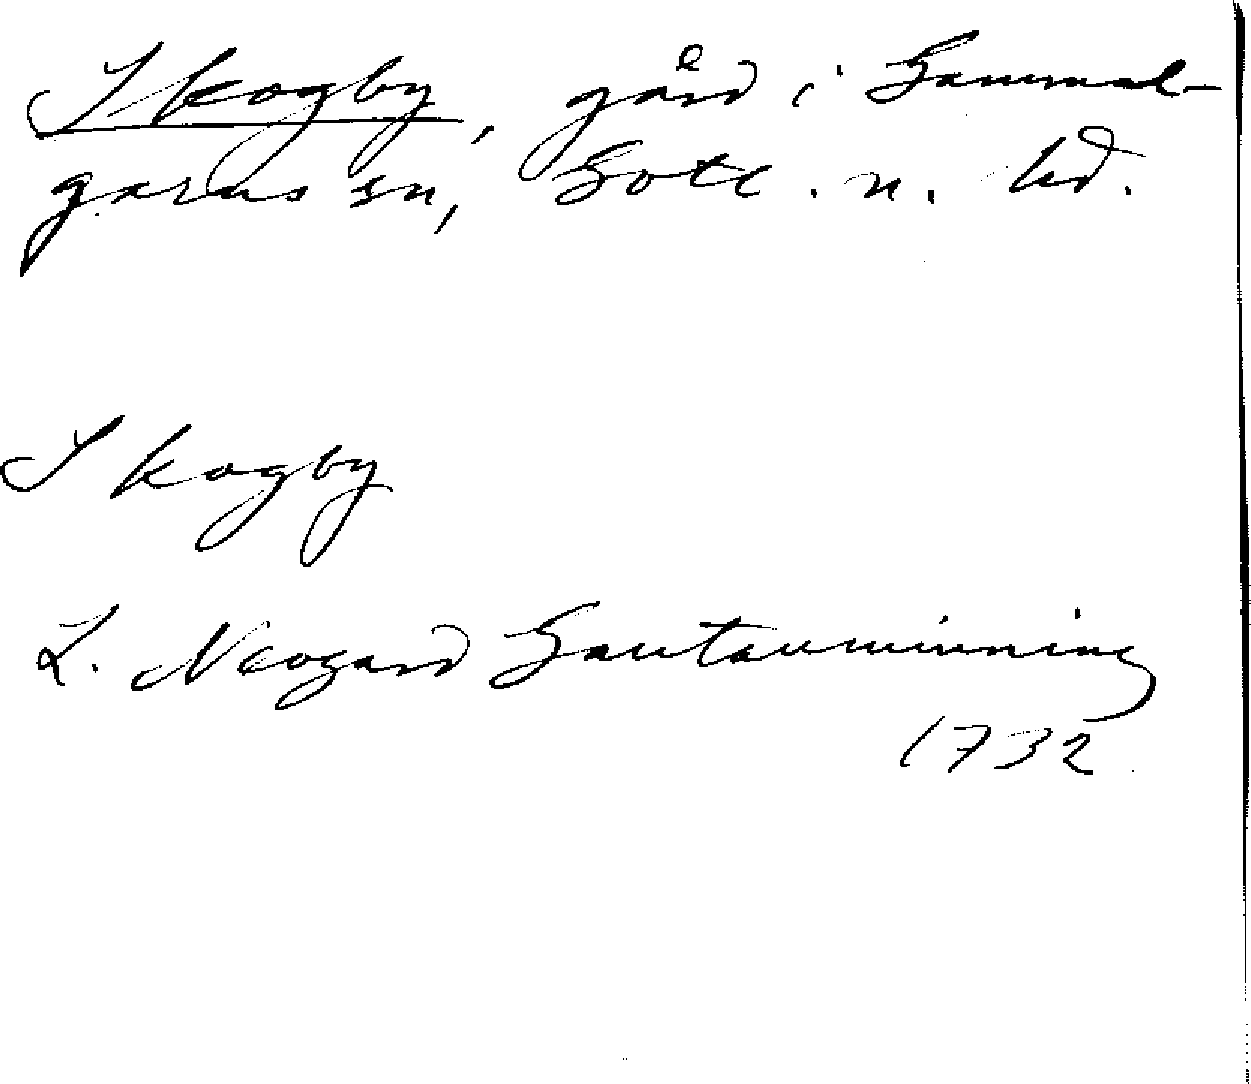 Skogby, gård i Gammal-
garns sn, Gotl. n. hd.
Skogby
L. Neogard Gautauminning
1732